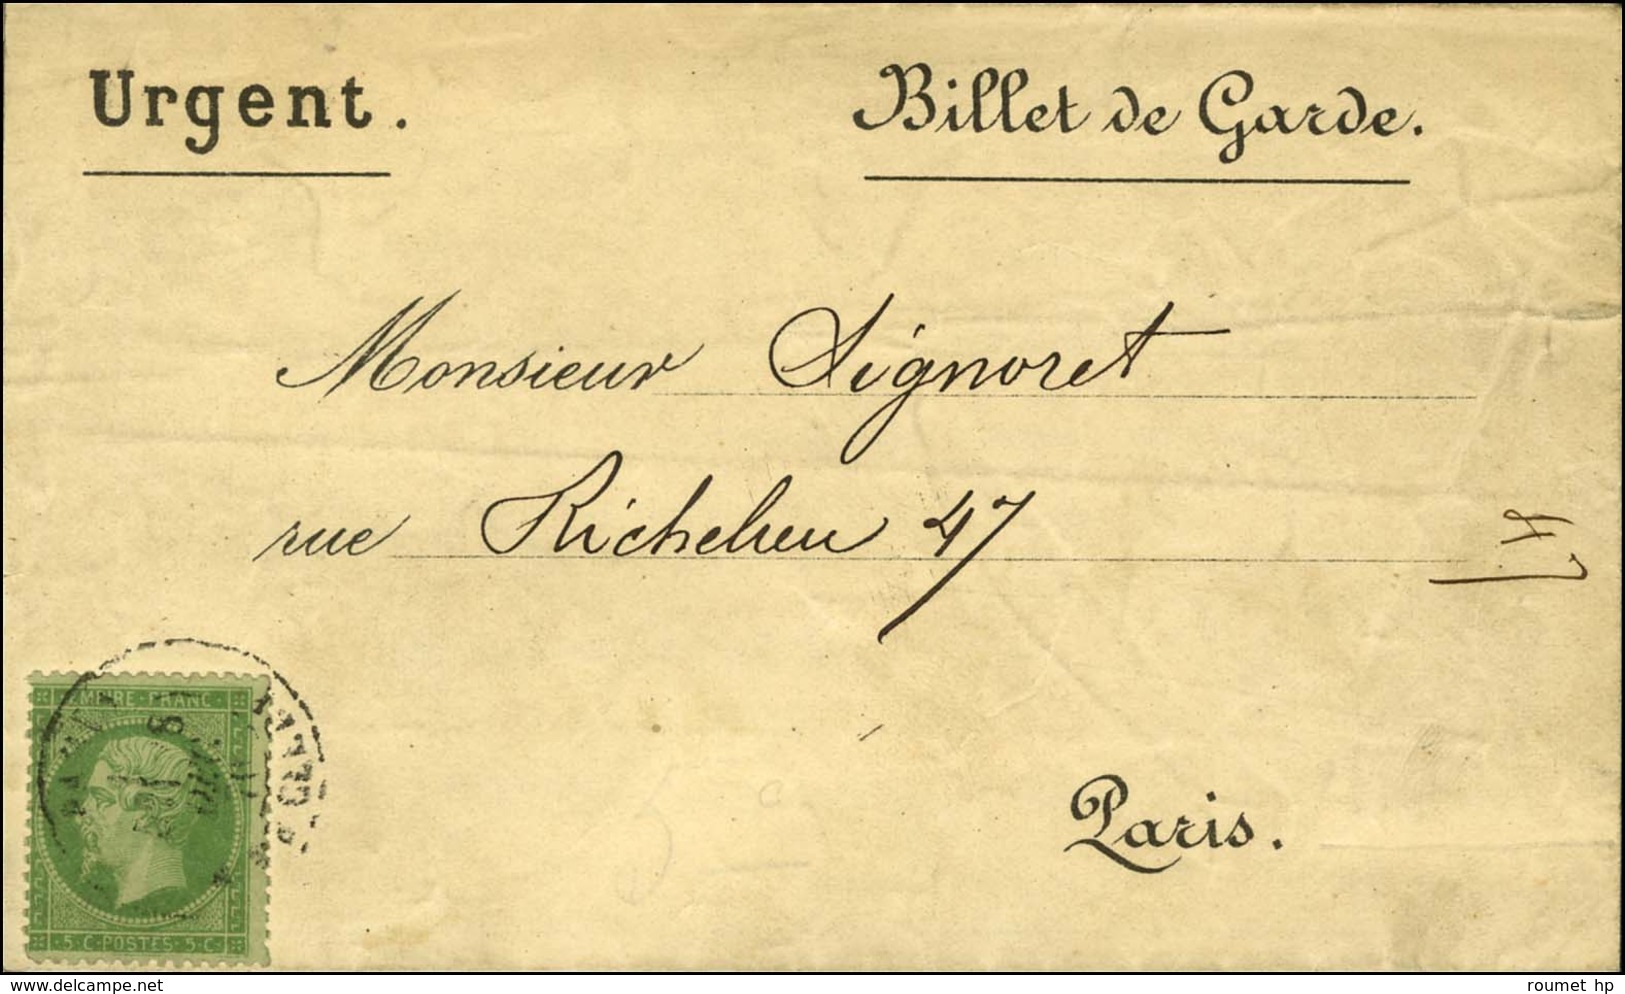 Urgent. Billet de Garde.
Monsieur Signoret
rue Richelieu 47
Paris.
EMPIRE · FRANC
5 · C · POSTES · 5 · C ·
www.delcampe.net
roumet hp